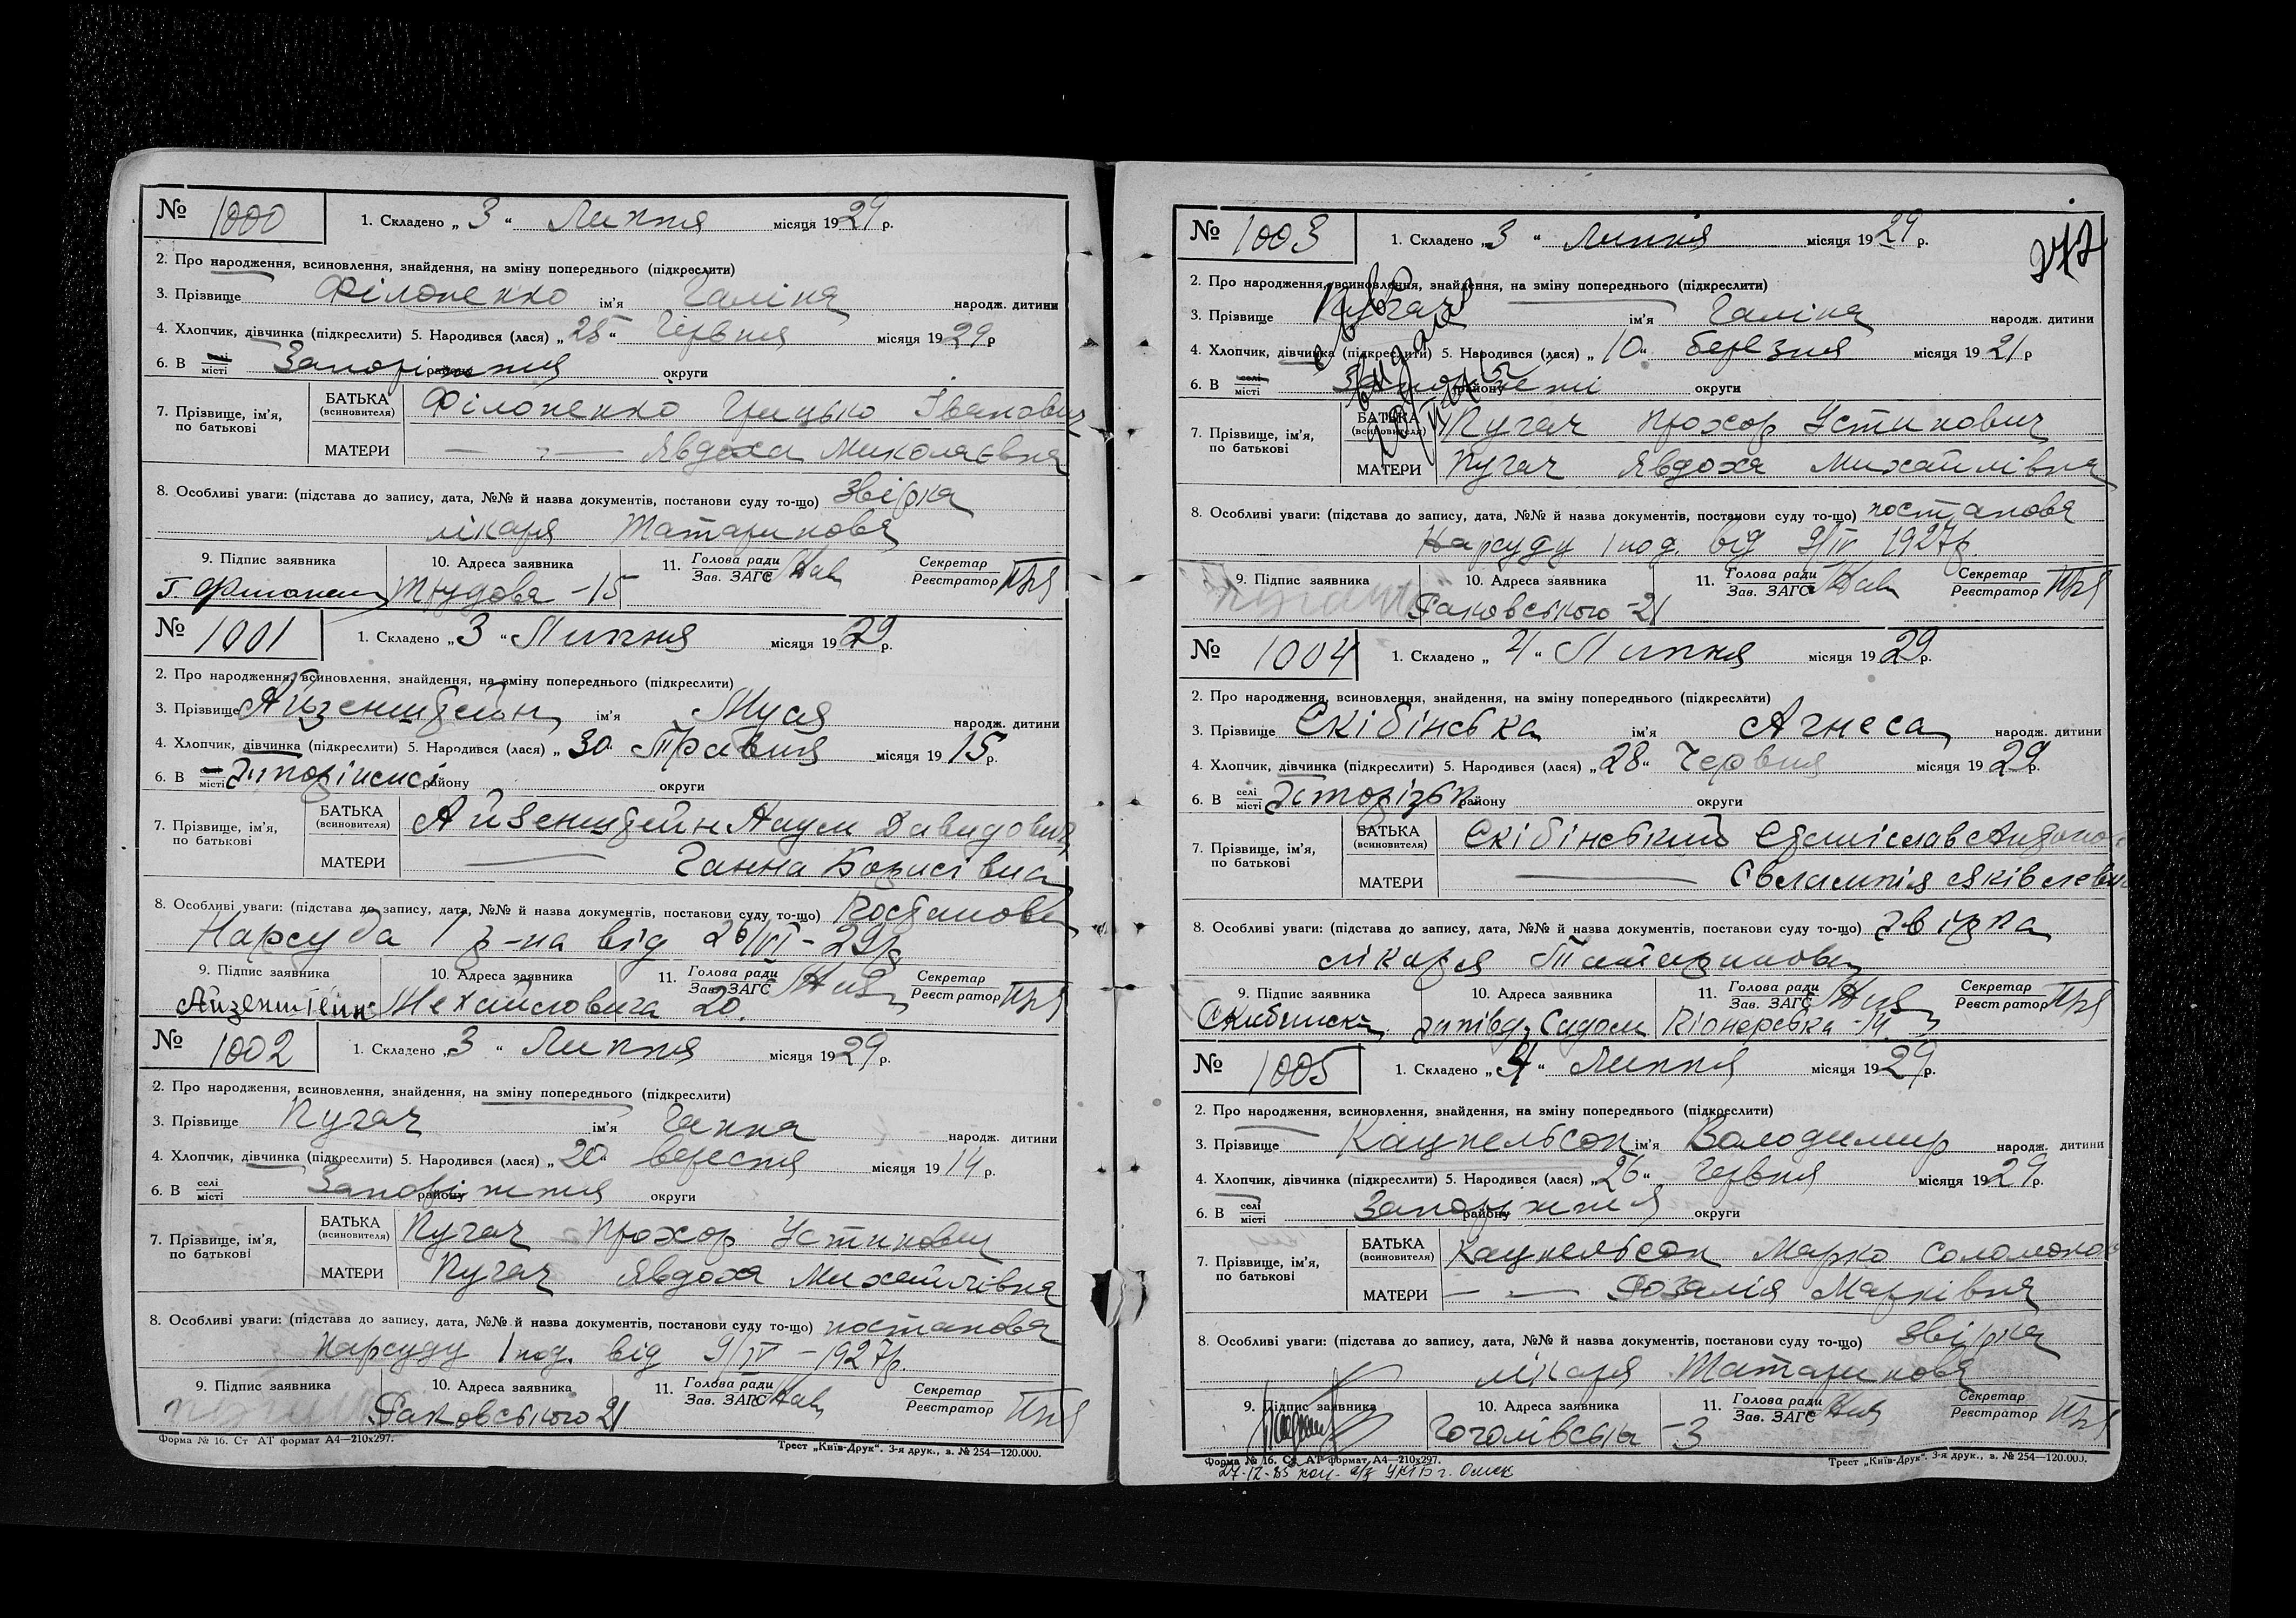 № 1000 1. Складено „3“ Липня місяця 1929 р.
2. Про народження, всиновлення, знайдення, на зміну попереднього (підкреслити)
3. Прізвище Філоненко ім'я Галіна народж. дитини
4. Хлопчик, дівчинка (підкреслити) 5. Народився (лася) „28“ Червня місяця 1929 р
6. В селі місті Запоріжжя району округи
7. Прізвище, ім'я, по батькові БАТЬКА (всиновителя) Філоненко Грицько Іванович
МАТЕРИ — „ — Явдоха Миколаєвна
8. Особливі уваги: (підстава до запису, дата, №№ й назва документів, постанови суду то-що) Звірка
лікаря Татаринова
9. Підпис заявника 10. Адреса заявника 11. Голова ради Зав. ЗАГС Секретар Реєстратор
Трудова -15
№ 1001 1. Складено „3“ Липня місяця 1929 р.
2. Про народження, всиновлення, знайдення, на зміну попереднього (підкреслити)
3. Прізвище Айзенштейн ім'я Муся народж. дитини
4. Хлопчик, дівчинка (підкреслити) 5. Народився (лася) „30“ Травня місяця 1915 р.
6. В місті району округи
7. Прізвище, ім'я, по батькові БАТЬКА (всиновителя) Айзенштейн Наум Давидович
МАТЕРИ — Ганна Борисівна
8. Особливі уваги: (підстава до запису, дата, №№ й назва документів, постанови суду то-що) Постанова
Нарсуда 1 р-на від 26/VI - 29р
9. Підпис заявника 10. Адреса заявника 11. Голова ради Зав. ЗАГС Секретар Реєстратор
Айзенштейн 20.
№ 1002 1. Складено „3“ Липня місяця 1929 р.
2. Про народження, всиновлення, знайдення, на зміну попереднього (підкреслити)
3. Прізвище Пугач ім'я Ганна народж. дитини
4. Хлопчик, дівчинка (підкреслити) 5. Народився (лася) „20“ вересня місяця 1914 р.
6. В селі місті Запоріжжя району округи
7. Прізвище, ім'я, по батькові БАТЬКА (всиновителя) Пугач Прохор Устинович
МАТЕРИ Пугач Явдоха Михайлівна
8. Особливі уваги: (підстава до запису, дата, №№ й назва документів, постанови суду то-що) постанова
Нарсуду 1 под. від 9/IV - 1927р.
9. Підпис заявника 10. Адреса заявника 11. Голова ради Зав. ЗАГС Секретар Реєстратор
Раковського 21
Форма № 16. Ст АТ формат А4—210х297. Трест „Київ-Друк“. 3-я друк., з. № 254—120.000.
№ 1003 1. Складено „3“ Липня місяця 1929 р.
2. Про народження, всиновлення, знайдення, на зміну попереднього (підкреслити)
3. Прізвище Пугач ім'я Галіна народж. дитини
4. Хлопчик, дівчинка (підкреслити) 5. Народився (лася) „10“ березня місяця 1921 р
6. В селі місті району округи
7. Прізвище, ім'я, по батькові БАТЬКА (всиновителя) Пугач Прохор Устинович
МАТЕРИ Пугач Явдоха Михайлівна
8. Особливі уваги: (підстава до запису, дата, №№ й назва документів, постанови суду то-що) постанова
Нарсуду 1 под. від 9/IV 1927р.
9. Підпис заявника 10. Адреса заявника 11. Голова ради Зав. ЗАГС Секретар Реєстратор
Раковського -21
№ 1004 1. Складено „4“ Липня місяця 1929 р.
2. Про народження, всиновлення, знайдення, на зміну попереднього (підкреслити)
3. Прізвище Скібінська ім'я Агнеса народж. дитини
4. Хлопчик, дівчинка (підкреслити) 5. Народився (лася) „28“ Червня місяця 1929 р.
6. В селі місті району округи
7. Прізвище, ім'я, по батькові БАТЬКА (всиновителя) Скібінський Станіслав
МАТЕРИ — Євлампія Яківлевна
8. Особливі уваги: (підстава до запису, дата, №№ й назва документів, постанови суду то-що) звірка
лікаря Татаринова
9. Підпис заявника 10. Адреса заявника 11. Голова ради Зав. ЗАГС Секретар Реєстратор
№ 1005 1. Складено „4“ Липня місяця 1929 р.
2. Про народження, всиновлення, знайдення, на зміну попереднього (підкреслити)
3. Прізвище Кацнельсон ім'я Володимир народж. дитини
4. Хлопчик, дівчинка (підкреслити) 5. Народився (лася) „26“ Червня місяця 1929 р.
6. В селі місті Запоріжжя району округи
7. Прізвище, ім'я, по батькові БАТЬКА (всиновителя) Кацнельсон Марко
МАТЕРИ — „ — Розалія Марківна
8. Особливі уваги: (підстава до запису, дата, №№ й назва документів, постанови суду то-що) звірка
лікаря Татаринова
9. Підпис заявника 10. Адреса заявника 11. Голова ради Зав. ЗАГС Секретар Реєстратор
Гоголівська -3
Форма № 16. Ст АТ формат А4—210х297. Трест „Київ-Друк“. 3-я друк., з. № 254—120.000.
г. Омск